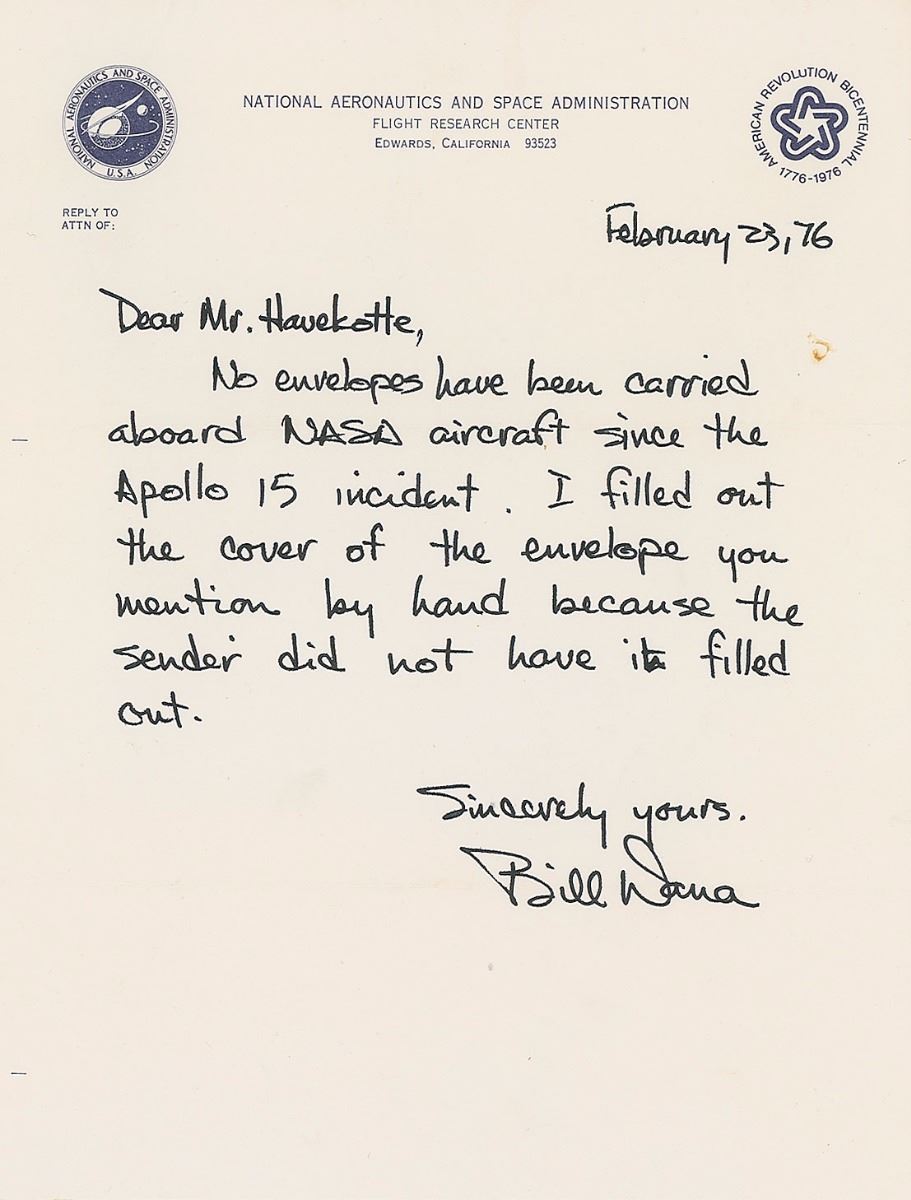 NATIONAL AERONAUTICS AND SPACE ADMINISTRATION
U.S.A.
NATIONAL AERONAUTICS AND SPACE ADMINISTRATION
FLIGHT RESEARCH CENTER
EDWARDS, CALIFORNIA 93523
AMERICAN REVOLUTION BICENTENNIAL
1776-1976
REPLY TO
ATTN OF:
February 23, 76
Dear Mr. Havekotte,
No envelopes have been carried
aboard NASA aircraft since the
Apollo 15 incident. I filled out
the cover of the envelope you
mention by hand because the
sender did not have it filled
out.
Sincerely yours.
Bill Dana